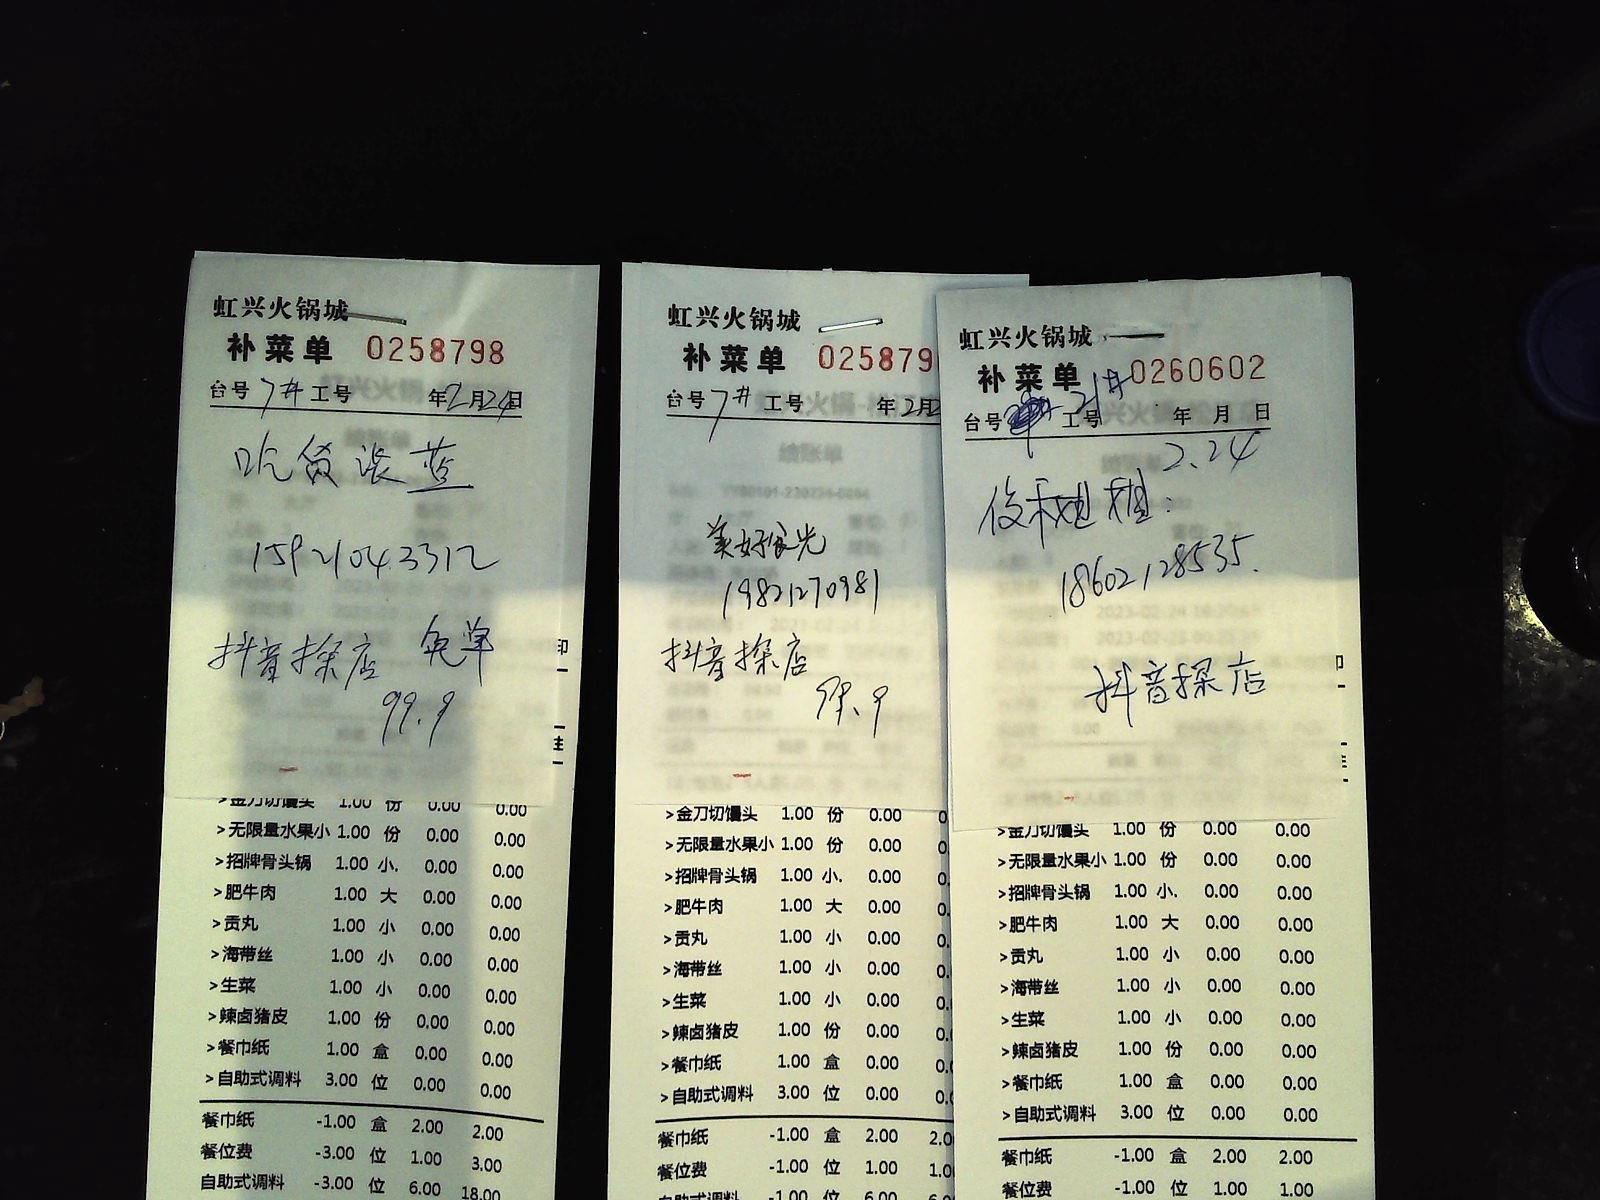 虹兴火锅城
补菜单 0258798
台号 7# 工号 年2月24日
吃货淡蓝
15921043312
抖音探店 免单
99.9
>金刀切馒头 1.00 份 0.00 0.00
>无限量水果小 1.00 份 0.00 0.00
>招牌骨头锅 1.00 小. 0.00 0.00
>肥牛肉 1.00 大 0.00 0.00
>贡丸 1.00 小 0.00 0.00
>海带丝 1.00 小 0.00 0.00
>生菜 1.00 小 0.00 0.00
>辣卤猪皮 1.00 份 0.00 0.00
>餐巾纸 1.00 盒 0.00 0.00
>自助式调料 3.00 位 0.00 0.00
餐巾纸 -1.00 盒 2.00 2.00
餐位费 -3.00 位 1.00 3.00
自助式调料 -3.00 位 6.00 18.00
虹兴火锅城
补菜单 025879
台号 7# 工号 年2月2
美好食光
19821270981
抖音探店
98.9
>金刀切馒头 1.00 份 0.00 0
>无限量水果小 1.00 份 0.00 0
>招牌骨头锅 1.00 小. 0.00 0.
>肥牛肉 1.00 大 0.00 0.
>贡丸 1.00 小 0.00 0.
>海带丝 1.00 小 0.00 0.
>生菜 1.00 小 0.00 0.
>辣卤猪皮 1.00 份 0.00 0.
>餐巾纸 1.00 盒 0.00 0.
>自助式调料 3.00 位 0.00 0.
餐巾纸 -1.00 盒 2.00 2.0
餐位费 -1.00 位 1.00 1.0
自助式调料 -1.00 位 6.00 6.0
虹兴火锅城
补菜单 0260602
台号 21# 工号 年 月 日
2.24
18602128535.
抖音探店
>金刀切馒头 1.00 份 0.00 0.00
>无限量水果小 1.00 份 0.00 0.00
>招牌骨头锅 1.00 小. 0.00 0.00
>肥牛肉 1.00 大 0.00 0.00
>贡丸 1.00 小 0.00 0.00
>海带丝 1.00 小 0.00 0.00
>生菜 1.00 小 0.00 0.00
>辣卤猪皮 1.00 份 0.00 0.00
>餐巾纸 1.00 盒 0.00 0.00
>自助式调料 3.00 位 0.00 0.00
餐巾纸 -1.00 盒 2.00 2.00
餐位费 -1.00 位 1.00 1.00